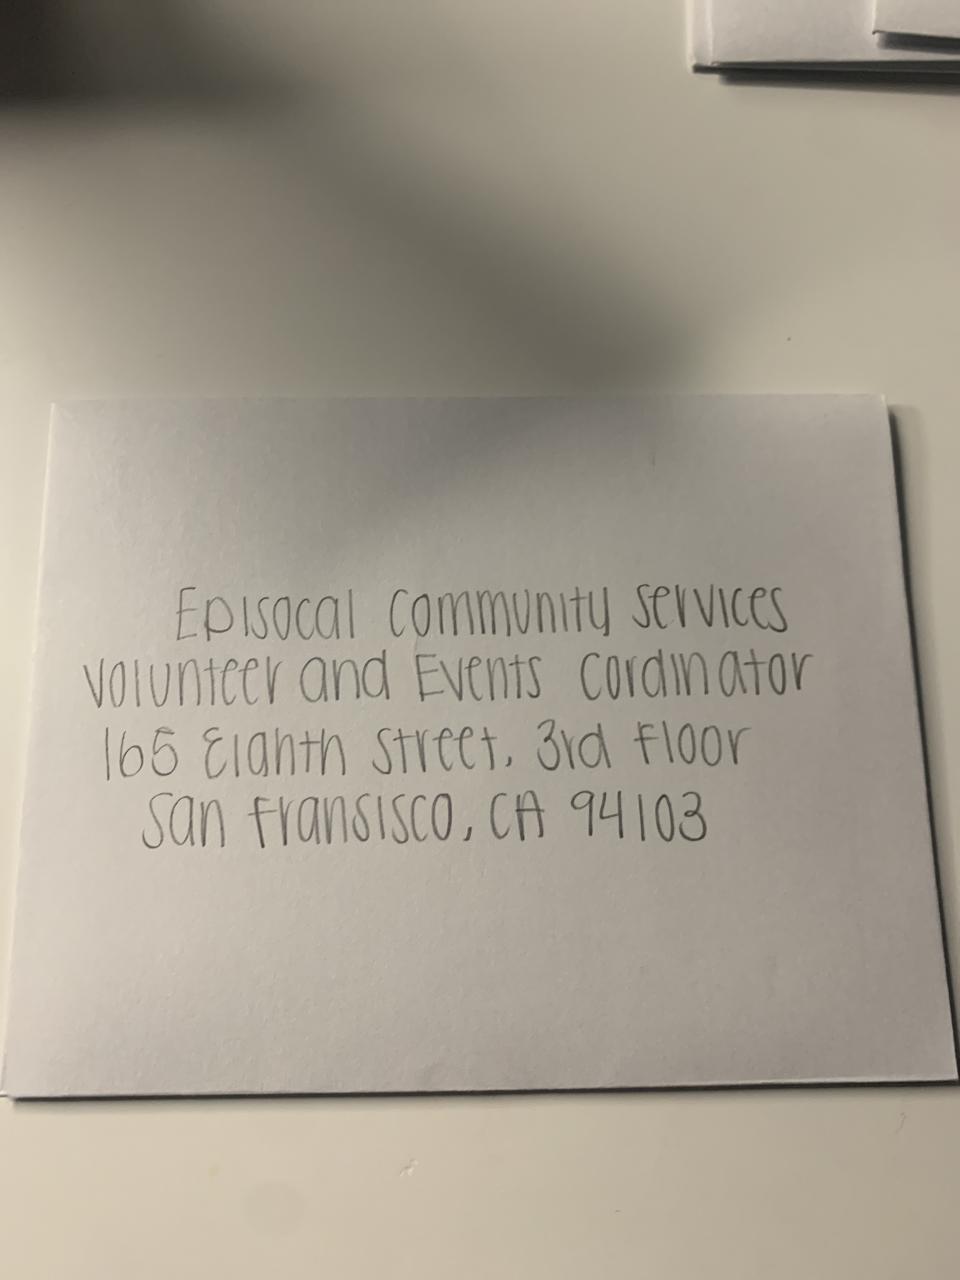 Episocal Community Services
Volunteer and Events Cordinator
165 Eighth Street, 3rd Floor
San Fransisco, CA 94103